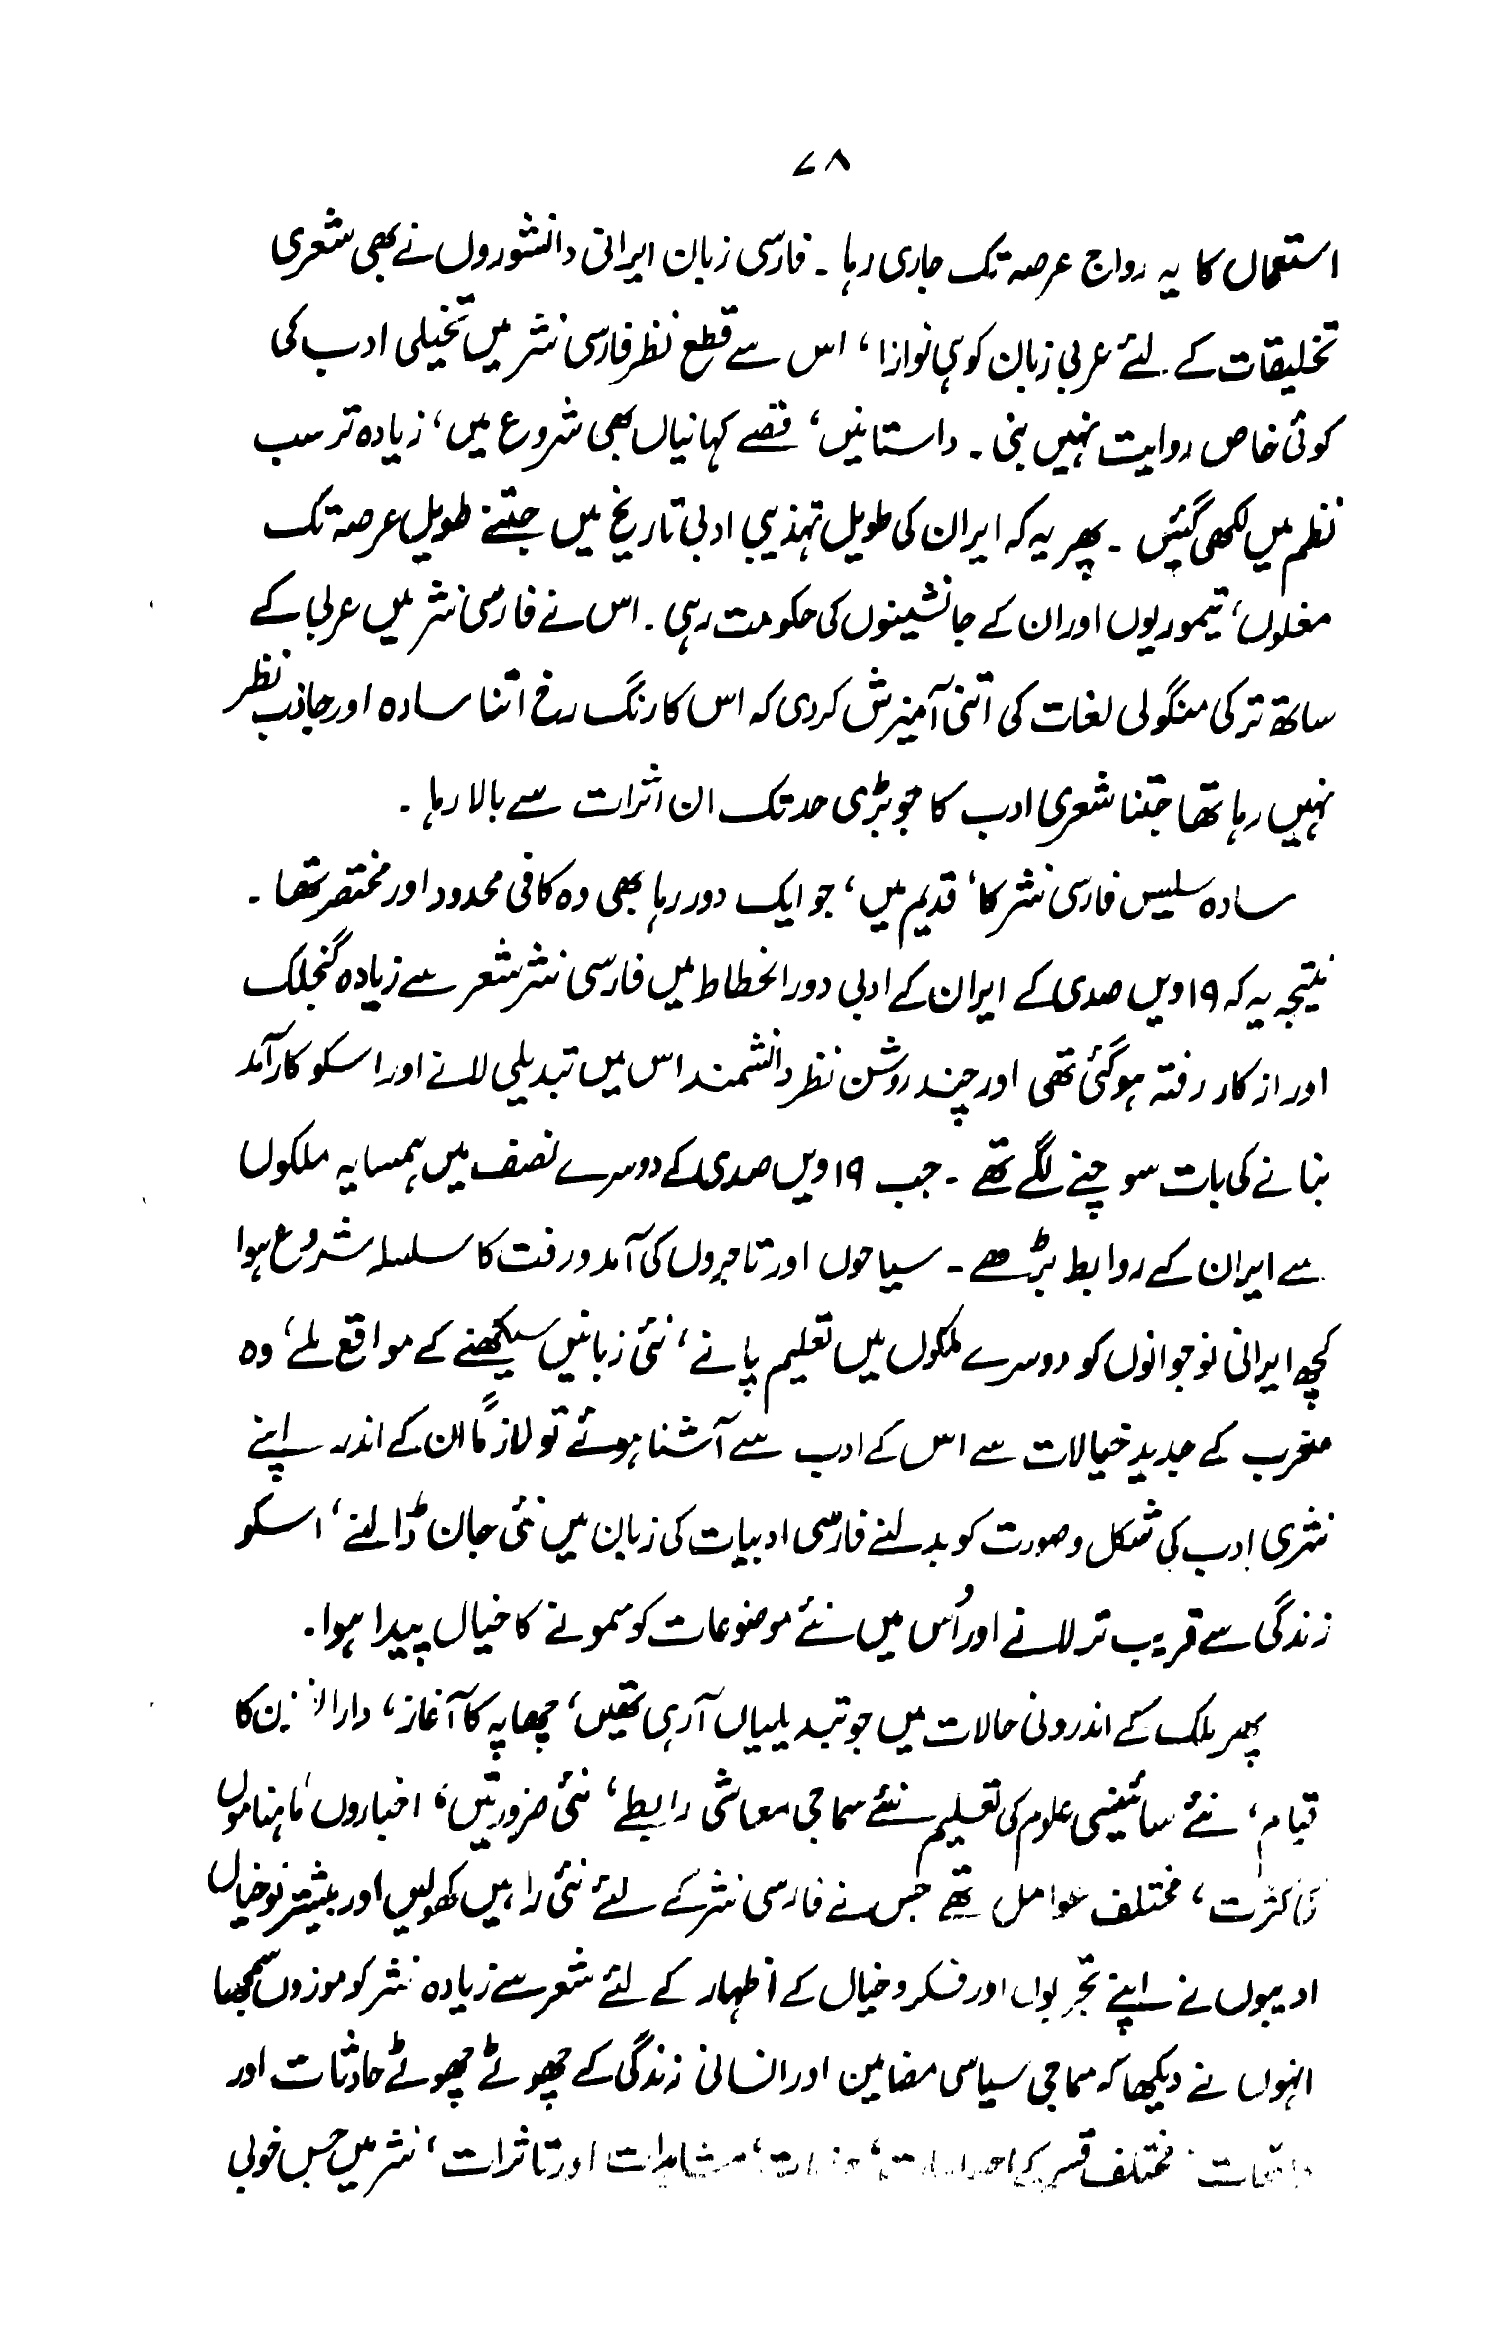 ۷۸
استعمال کا یہ رواج عرصہ تک جاری رہا ۔ فارسی زبان ایرانی دانشوروں نے بھی شعری
تخلیقات کے لئے عربی زبان کو ہی نوازا ، اس سے قطع نظر فارسی نثر میں تخیلی ادب کی
کوئی خاص روایت نہیں بنی ۔ داستانیں ، قصے کہانیاں بھی شروع میں ، زیادہ تر سب
نظم میں لکھی گئیں ۔ پھر یہ کہ ایران کی طویل تہذیبی ادبی تاریخ میں جتنے طویل عرصہ تک
مغلوں ، تیموریوں اور ان کے جانشینوں کی حکومت رہی ۔ اس نے فارسی نثر میں عربی کے
ساتھ ترکی منگولی لغات کی اتنی آمیزش کردی کہ اس کا رنگ رخ اتنا سادہ اور جاذب نظر
نہیں رہا تھا جتنا شعری ادب کا جو بڑی حد تک ان اثرات سے بالا رہا ۔
سادہ سلیس فارسی نثر کا ، قدیم میں ، جو ایک دور رہا بھی وہ کافی محدود اور مختصر تھا ۔
نتیجہ یہ کہ ۱۹ ویں صدی کے ایران کے ادبی دور انحطاط میں فارسی نثر شعر سے زیادہ گنجلک
اور از کار رفتہ ہوگئی تھی اور چند روشن نظر دانشمند اس میں تبدیلی لانے اور اسکو کار آمد
بنانے کی بات سوچنے لگے تھے ۔ جب ۱۹ ویں صدی کے دوسرے نصف میں ہمسایہ ملکوں
سے ایران کے روابط بڑھے ۔ سیاحوں اور تاجروں کی آمد و رفت کا سلسلہ شروع ہوا
کچھ ایرانی نوجوانوں کو دوسرے ملکوں میں تعلیم پانے ، نئی زبانیں سیکھنے کے مواقع ملے ، وہ
مغرب کے جدید خیالات سے اس کے ادب سے آشنا ہوئے تو لازماً ان کے اندر اپنے
نثری ادب کی شکل و صورت کو بدلنے فارسی ادبیات کی زبان میں نئی جان ڈالنے ، اسکو
زندگی سے قریب تر لانے اور اُس میں نئے موضوعات کو سمونے کا خیال پیدا ہوا ۔
پھر ملک کے اندرونی حالات میں جو تبدیلیاں آرہی تھیں ، چھاپہ کا آغاز ، کا
قیام ، نئے سائنسی علوم کی تعلیم نئے سماجی معاشی رابطے ، نئی ضرورتیں ، اخباروں ماہناموں
کی کثرت ، مختلف عوامل تھے جس نے فارسی نثر کے لئے نئی راہیں کھولیں اور بیشتر نو خیال
ادیبوں نے اپنے تجربوں اور فکر و خیال کے اظہار کے لئے شعر سے زیادہ نثر کو موزوں سمجھا
انہوں نے دیکھا کہ سماجی سیاسی مضامین اور انسانی زندگی کے چھوٹے چھوٹے حادثات اور
واقعات مختلف قسم کے مشاہدات اور تاثرات ، نثر میں جس خوبی